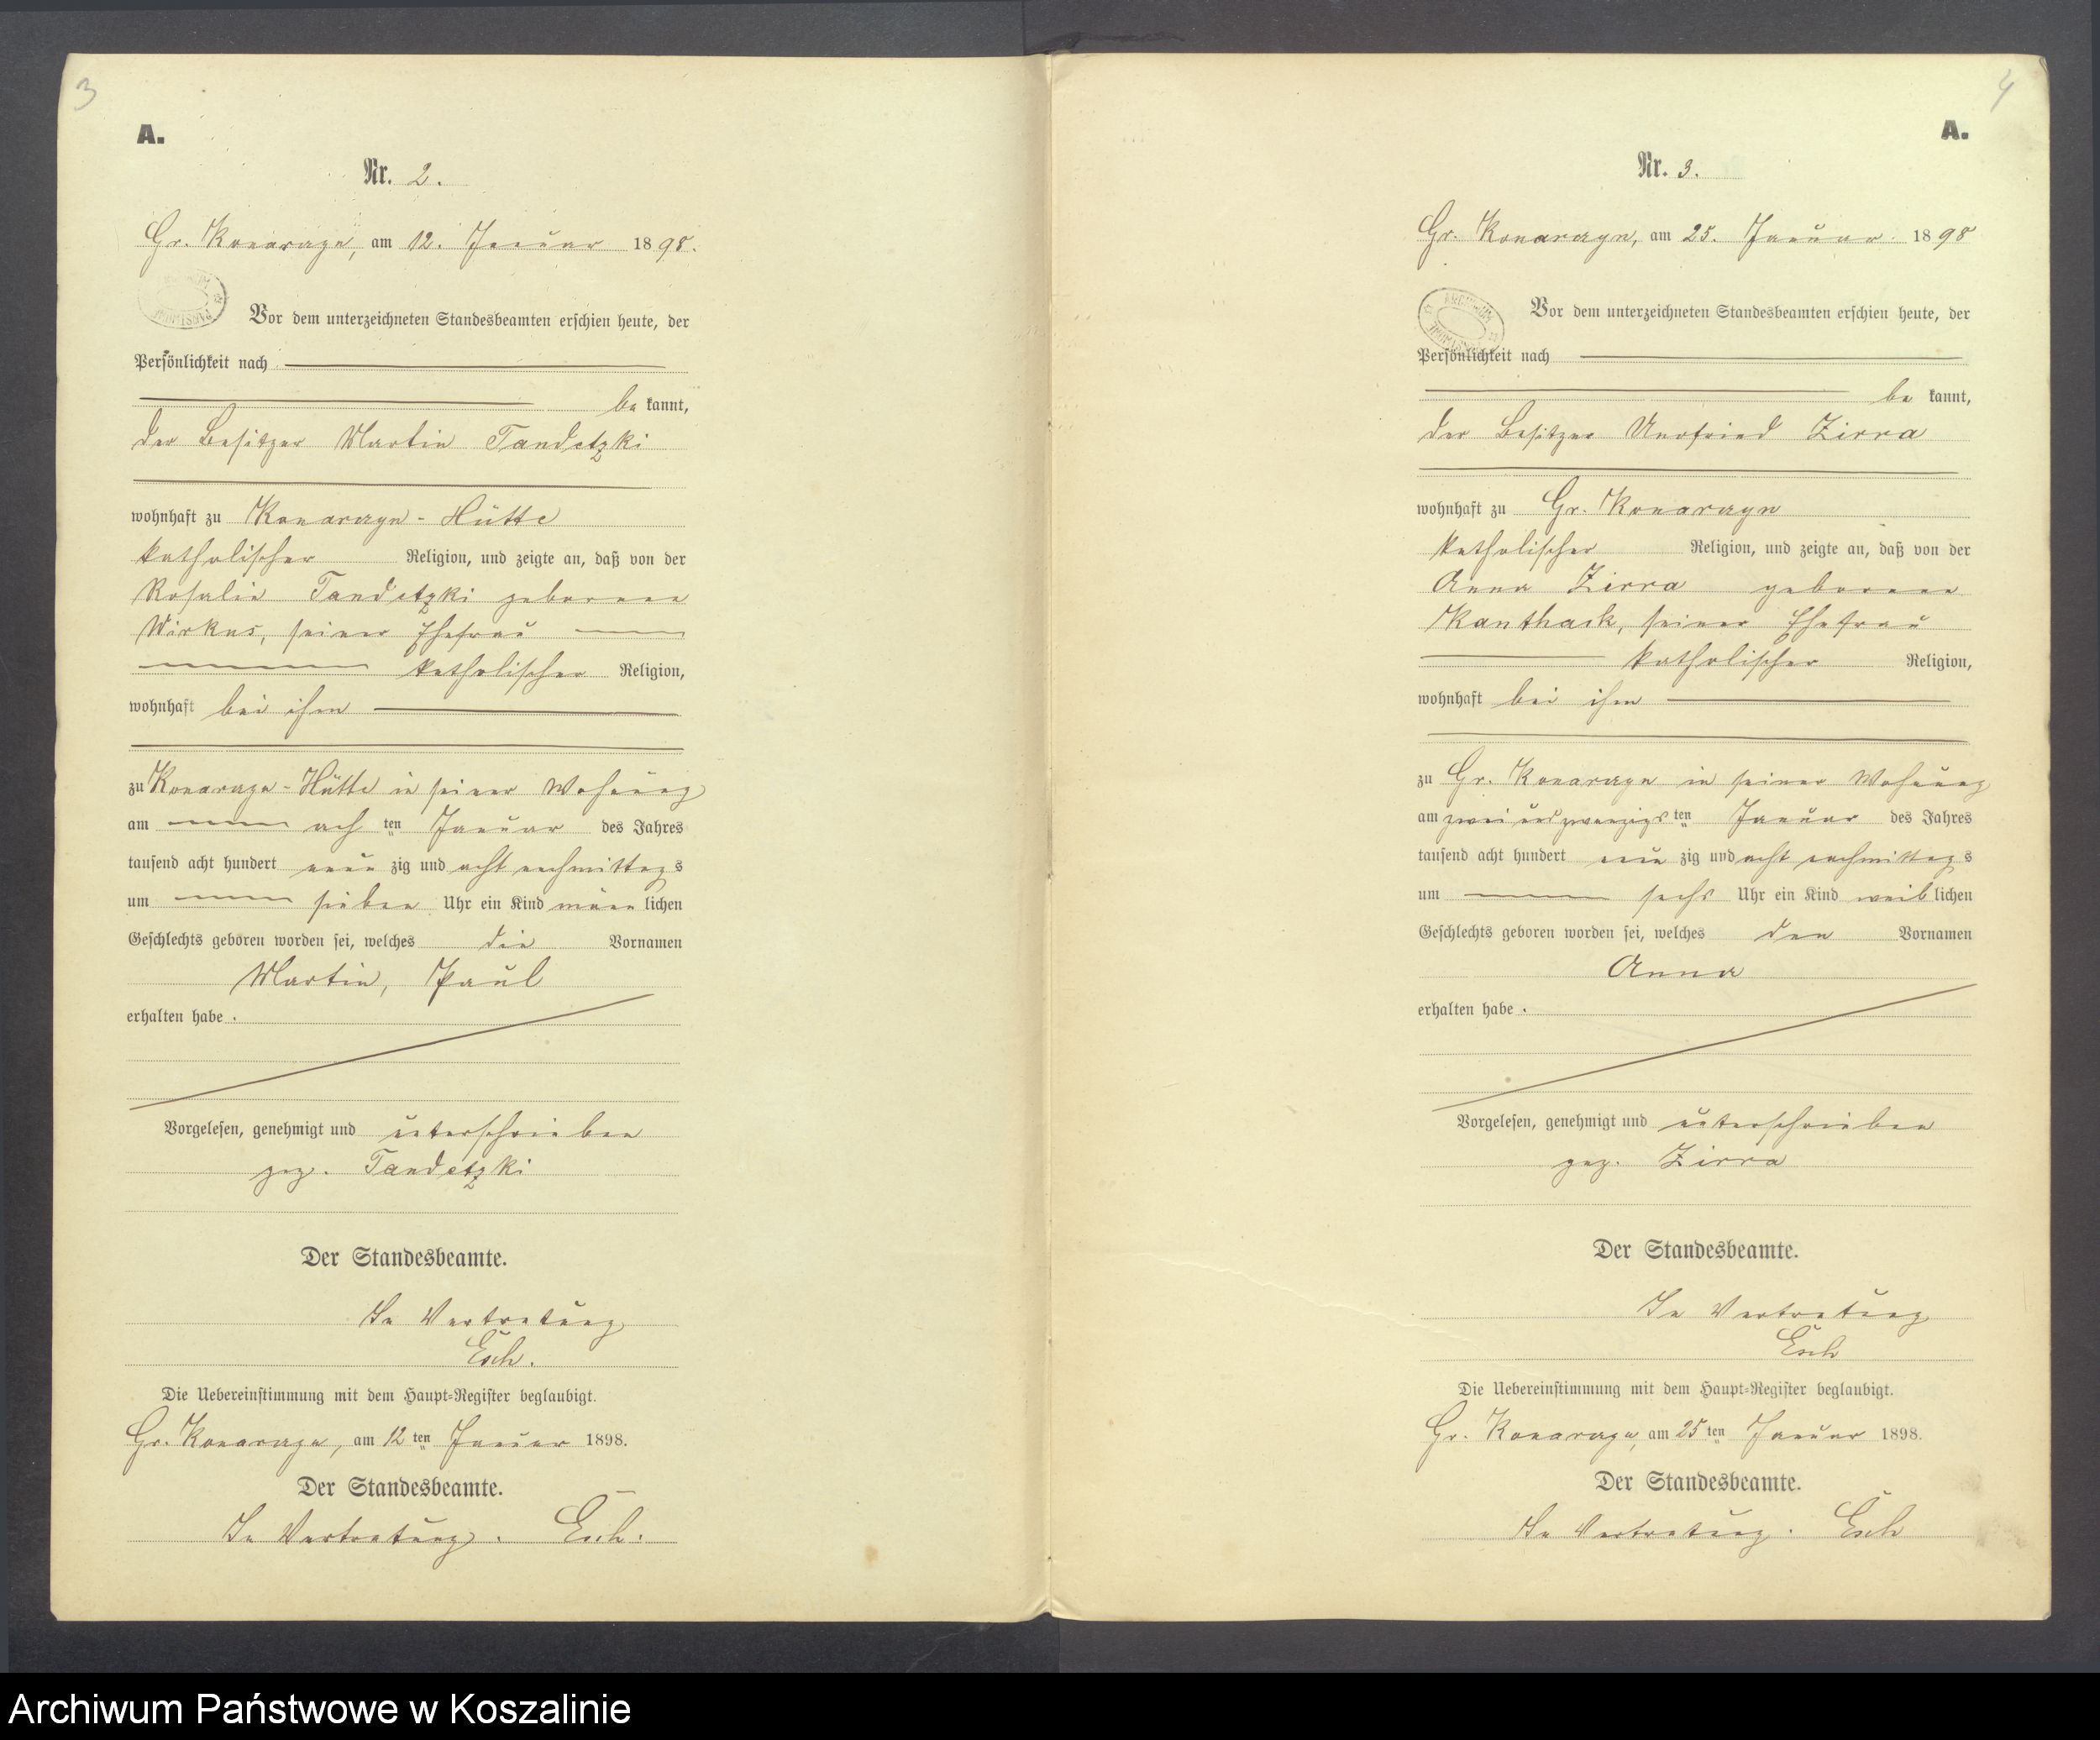 3
A.
Nr. 2.
Gr. Konarzyn, am 12. Januar 1898.
Vor dem unterzeichneten Standesbeamten erschien heute, der
Persönlichkeit nach
be kannt,
der Besitzer Martin Tandetzki
wohnhaft zu Konarzyn-Hütte
katholischer Religion, und zeigte an, daß von der
Rosalie Tandetzki geborenen
Wirkus, seiner Ehefrau
katholischer Religion,
wohnhaft bei ihm
zu Konarzyn-Hütte in seiner Wohnung
am ach ten Januar des Jahres
tausend acht hundert neun zig und acht nachmittag s
um sieben Uhr ein Kind männ lichen
Geschlechts geboren worden sei, welches die Vornamen
Martin, Paul
erhalten habe .
Vorgelesen, genehmigt und unterschrieben
gez. Tandetzki
Der Standesbeamte.
In Vertretung
Esch.
Die Uebereinstimmung mit dem Haupt-Register beglaubigt.
Gr. Konarzyn, am 12 ten Januar 1898.
Der Standesbeamte.
In Vertretung. Esch.
4
A.
Nr. 3.
Gr. Konarzyn, am 25. Januar 1898
Vor dem unterzeichneten Standesbeamten erschien heute, der
Persönlichkeit nach
be kannt,
der Besitzer Zirra
wohnhaft zu Gr. Konarzyn
katholischer Religion, und zeigte an, daß von der
Anna Zirra geborenen
Kanthack, seiner Ehefrau
katholischer Religion,
wohnhaft bei ihm
zu Gr. Konarzyn in seiner Wohnung
am zwei und zwanzigs ten Januar des Jahres
tausend acht hundert neun zig und acht nachmittag s
um sechs Uhr ein Kind weib lichen
Geschlechts geboren worden sei, welches den Vornamen
Anna
erhalten habe .
Vorgelesen, genehmigt und unterschrieben
gez. Zirra
Der Standesbeamte.
In Vertretung
Esch
Die Uebereinstimmung mit dem Haupt-Register beglaubigt.
Gr. Konarzyn, am 25 ten Januar 1898.
Der Standesbeamte.
In Vertretung. Esch
Archiwum Państwowe w Koszalinie